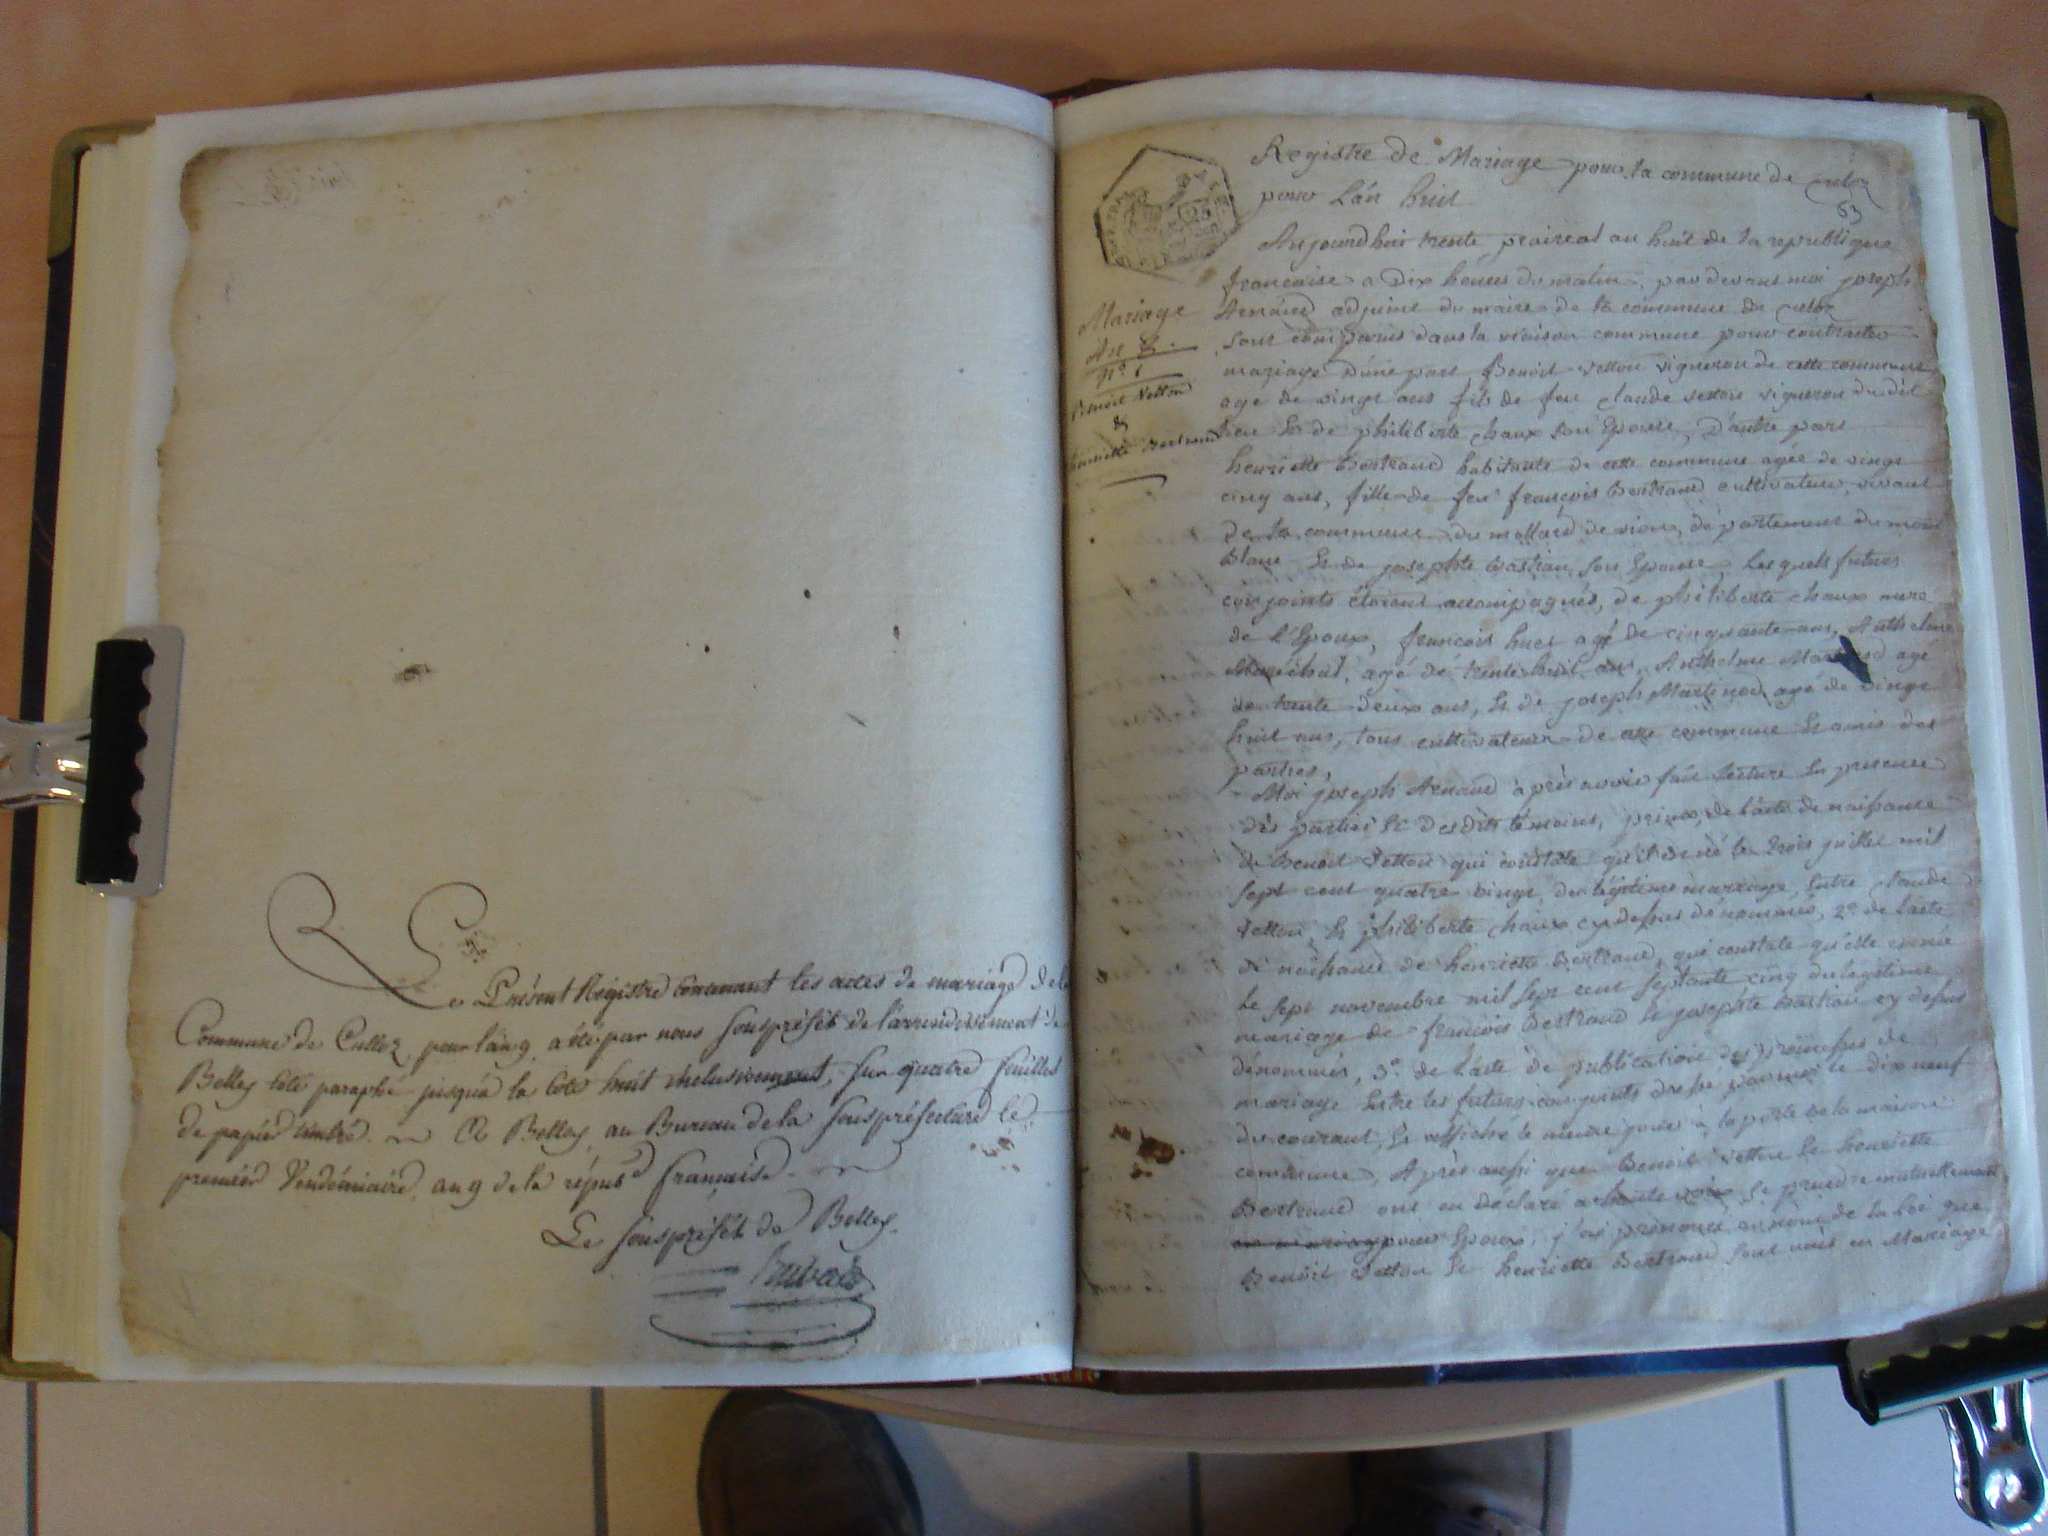 Le Présent Registre contenant les actes de mariage de la
Commune de Culloz pour l'an 9 a été par nous sousprefét de l'arrondissement de
Belley coté paraphé jusqu'a la cote huit inclusivement, sur quatre feuilles
de papier timbré. A Belley au Bureau de la sousprefecture le
premier Vendémiaire an 9 de la répub française.
Le sousprefét de Belley.
Registre de Mariage pour la commune de culoz
pour L'an huit
63
Mariage
An 8.
n° 1
Benoit Vettou
&
henriette Bertrand
Aujourdhui trente prairial an huit de la republique
francaise a dix heures du matin, par devant moi joseph
Arnaud adjoint du maire de la commune de culoz
sont comparus dans la maison commune pour contracter
mariage d'une part Benoit vettou vigneron de cette commune
age de vingt ans fils de feu claude vettou vigneron dudit
lieu & de philiberte chaux son Epouse, D'autre part
henriette Bertrand habitante de cette commune agée de vingt
cinq ans, fille de feu françois Bertrand cultivateur vivant
de la commune du mollard de vions, departement du mont
Blanc & de josephte bastian son Epouse, Lesquels futurs
conjoints étoient accompagnés, de philiberte chaux mere
de l'Epoux, francois huet agé de cinquante ans, Anthelme
Maréchal, agé de trente huit ans, Anthelme agé
de trente deux ans, & de joseph Martinod agé de vingt
huit ans, tous cultivateurs de cette commune & amis des
parties,
Moi joseph Arnaud après avoir fait lecture En presence
des parties & desdits témoins, primo, de l'acte de naissance
de Benoit Vettou qui constate qu'il est né le trois juillet mil
sept cent quatre vingt, du légitime mariage Entre claude
Vettou & philiberte chaux cy dessus dénommés, 2° de l'acte
de naissance de henriette Bertrand, qui constate qu'elle est née
le sept novembre mil sept cent septante cinq du legitime
mariage de francois Bertrand & josephte bastian cy dessus
dénommés, 3° de l'acte de publication des promesses de
mariage Entre les futurs conjoints dressé par moi le dix neuf
du courant, & affiché le meme jour à la porte de la maison
commune, Après aussi que Benoit vettou & henriette
Bertrand ont eu déclaré a haute voix se prendre mutuellement
pour Epoux, j'ai prononcé au nom de la loi que
Benoit Vettou & henriette Bertrand sont unis en Mariage